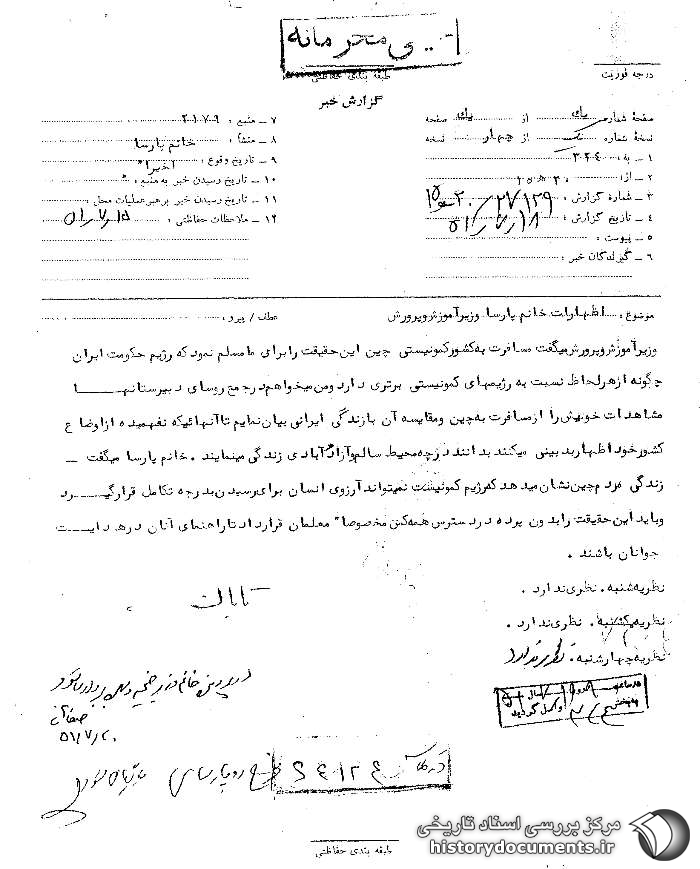 محرمانه
طبقه بندی حفاظتی
درجه فوریت
گزارش خبر
صفحهٔ شماره یک از یک صفحه
نسخهٔ شماره یک از چهار نسخه
۱ ــ به : ۳۲۴
۲ ــ از :
۳ ــ شمارهٔ گزارش :
۴ ــ تاریخ گزارش : ۵۱/۷/۱۸
۵ ــ پیوست :
۶ ــ گیرندگان خبر :
۷ ــ منبع : ۲۱۷۹
۸ ــ منشأ : خانم پارسا
۹ ــ تاریخ وقوع : اخیرا"
۱۰ ــ تاریخ رسیدن خبر به منبع : "
۱۱ ــ تاریخ رسیدن خبر برهبر عملیات محل :
۱۲ ــ ملاحظات حفاظتی : ۵۱/۷/۱۵
موضوع : اظهارات خانم پارسا وزیرآموزش وپرورش
عطف / پیرو :
وزیرآموزش وپرورش میگفت مسافرت به کشورکمونیستی چین این حقیقت رابرای ما مسلم نمود که رژیم حکومت ایران
چگونه ازهرلحاظ نسبت به رژیمهای کمونیستی برتری دارد ومن میخواهم درجمع روسای دبیرستانهــا
مشاهدات خویش را ازمسافرت به چین ومقایسه آن بازندگی ایرانی بیان نمایم تاآنهائیکه نفهمیده ازاوضاع
کشورخود اظهاربدبینی میکنند بدانند درچه محیط سالم وآزاد آبادی زندگی مینمایند . خانم پارسا میگفت ــ
زندگی مردم چین نشان میدهد که رژیم کمونیست نمیتواند آرزوی انسان برای رسیدن بدرجه تکامل قرارگیــرد
وباید این حقیقت رابدون پرده دردسترس همه کس مخصوصا" معلمان قرارداد تاراهنمای آنان درهدایــت
جوانان باشند .
نظریه شنبه . نظری ندارد .
نظریه یکشنبه . نظری ندارد .
نظریه چهارشنبه . نظری ندارد
تابان
۵۱/۷/۲۰
مرکز بررسی اسناد تاریخی
historydocuments.ir
طبقه بندی حفاظتی